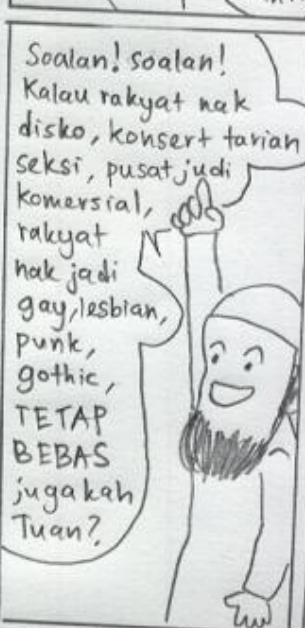 Soalan! soalan!
Kalau rakyat nak
disko, konsert tarian
seksi, pusat judi
komersial,
rakyat
nak jadi
gay, lesbian,
punk,
gothic,
TETAP
BEBAS
jugakah
Tuan?